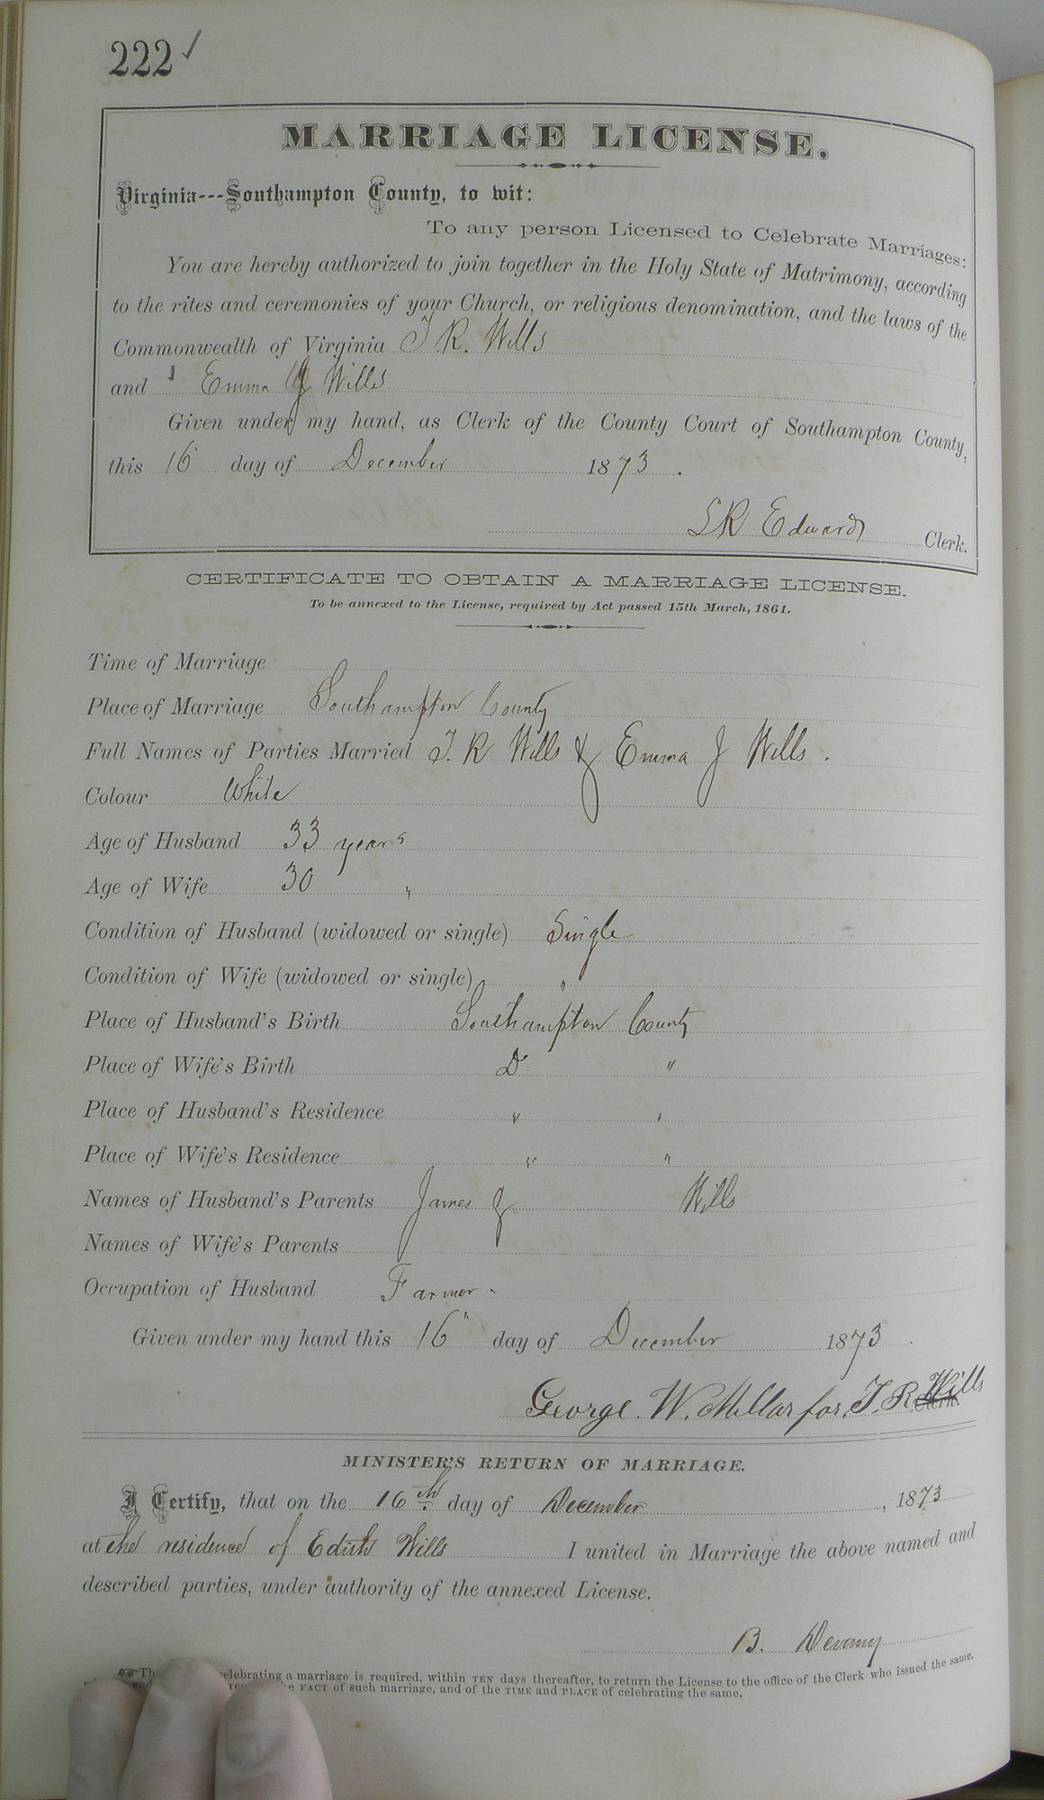 222 ✓
MARRIAGE LICENSE.
Virginia---Southampton County, to wit:
To any person Licensed to Celebrate Marriages:
You are hereby authorized to join together in the Holy State of Matrimony, according
to the rites and ceremonies of your Church, or religious denomination, and the laws of the
Commonwealth of Virginia T. R. Wills
and Emma J Wills
Given under my hand, as Clerk of the County Court of Southampton County,
this 16 day of December 1873.
L R Edwards Clerk.
CERTIFICATE TO OBTAIN A MARRIAGE LICENSE.
To be annexed to the License, required by Act passed 15th March, 1861.
Time of Marriage
Place of Marriage Southampton County
Full Names of Parties Married T. R Wills & Emma J Wills.
Colour White
Age of Husband 33 years
Age of Wife 30 "
Condition of Husband (widowed or single) Single
Condition of Wife (widowed or single) "
Place of Husband's Birth Southampton County
Place of Wife's Birth Do "
Place of Husband's Residence " "
Place of Wife's Residence " "
Names of Husband's Parents James J Wills
Names of Wife's Parents
Occupation of Husband Farmer.
Given under my hand this 16" day of December 1873.
George. W. Millar for. T. R Wills
MINISTER'S RETURN OF MARRIAGE.
I Certify, that on the 16th day of December, 1873
at the residence of Edith Wills I united in Marriage the above named and
described parties, under authority of the annexed License.
B. Devany
elebrating a marriage is required, within TEN days thereafter, to return the License to the office of the Clerk who issued the same,
FACT of such marriage, and of the TIME and PLACE of celebrating the same.